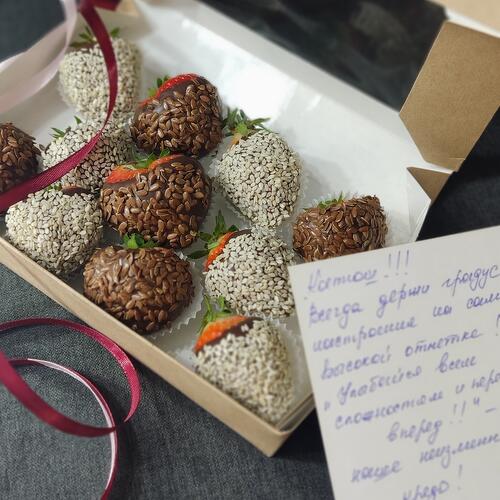 Настюш!!!
Всегда держи градус
настроения на сам
высокой отметке!
"Улыбайся всем
сложностям и пере
вперед!!" –
наше неизменн
кредо!